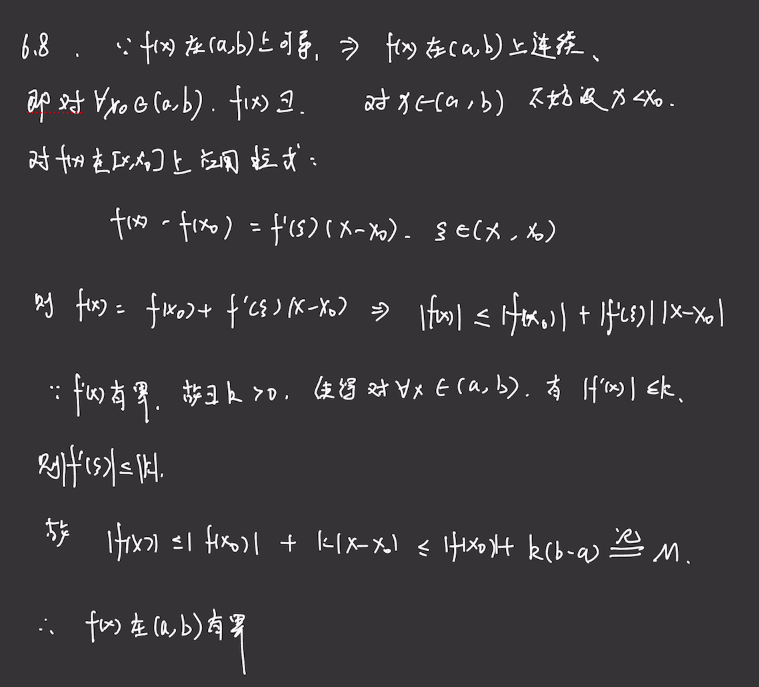 6.8 . ∵ f(x) 在(a,b)上可导, ⇒ f(x) 在(a,b)上连续、
即对∀x₀∈(a,b). f(x)∃. 对x∈(a,b) 不妨设x<x₀.
对f(x)在[x,x₀]上应用拉式:
f(x) - f(x₀) = f'(ξ)(x-x₀). ξ∈(x,x₀)
则 f(x) = f(x₀) + f'(ξ)(x-x₀) ⇒ |f(x)| ≤ |f(x₀)| + |f'(ξ)||x-x₀|
∵ f'(x)有界. 故∃k>0, 使得对∀x∈(a,b). 有 |f'(x)|≤k、
则|f'(ξ)|≤|k|.
故 |f(x)| ≤ |f(x₀)| + k|x-x₀| ≤ |f(x₀)|+ k(b-a) ≝记 M.
∴ f(x)在(a,b)有界